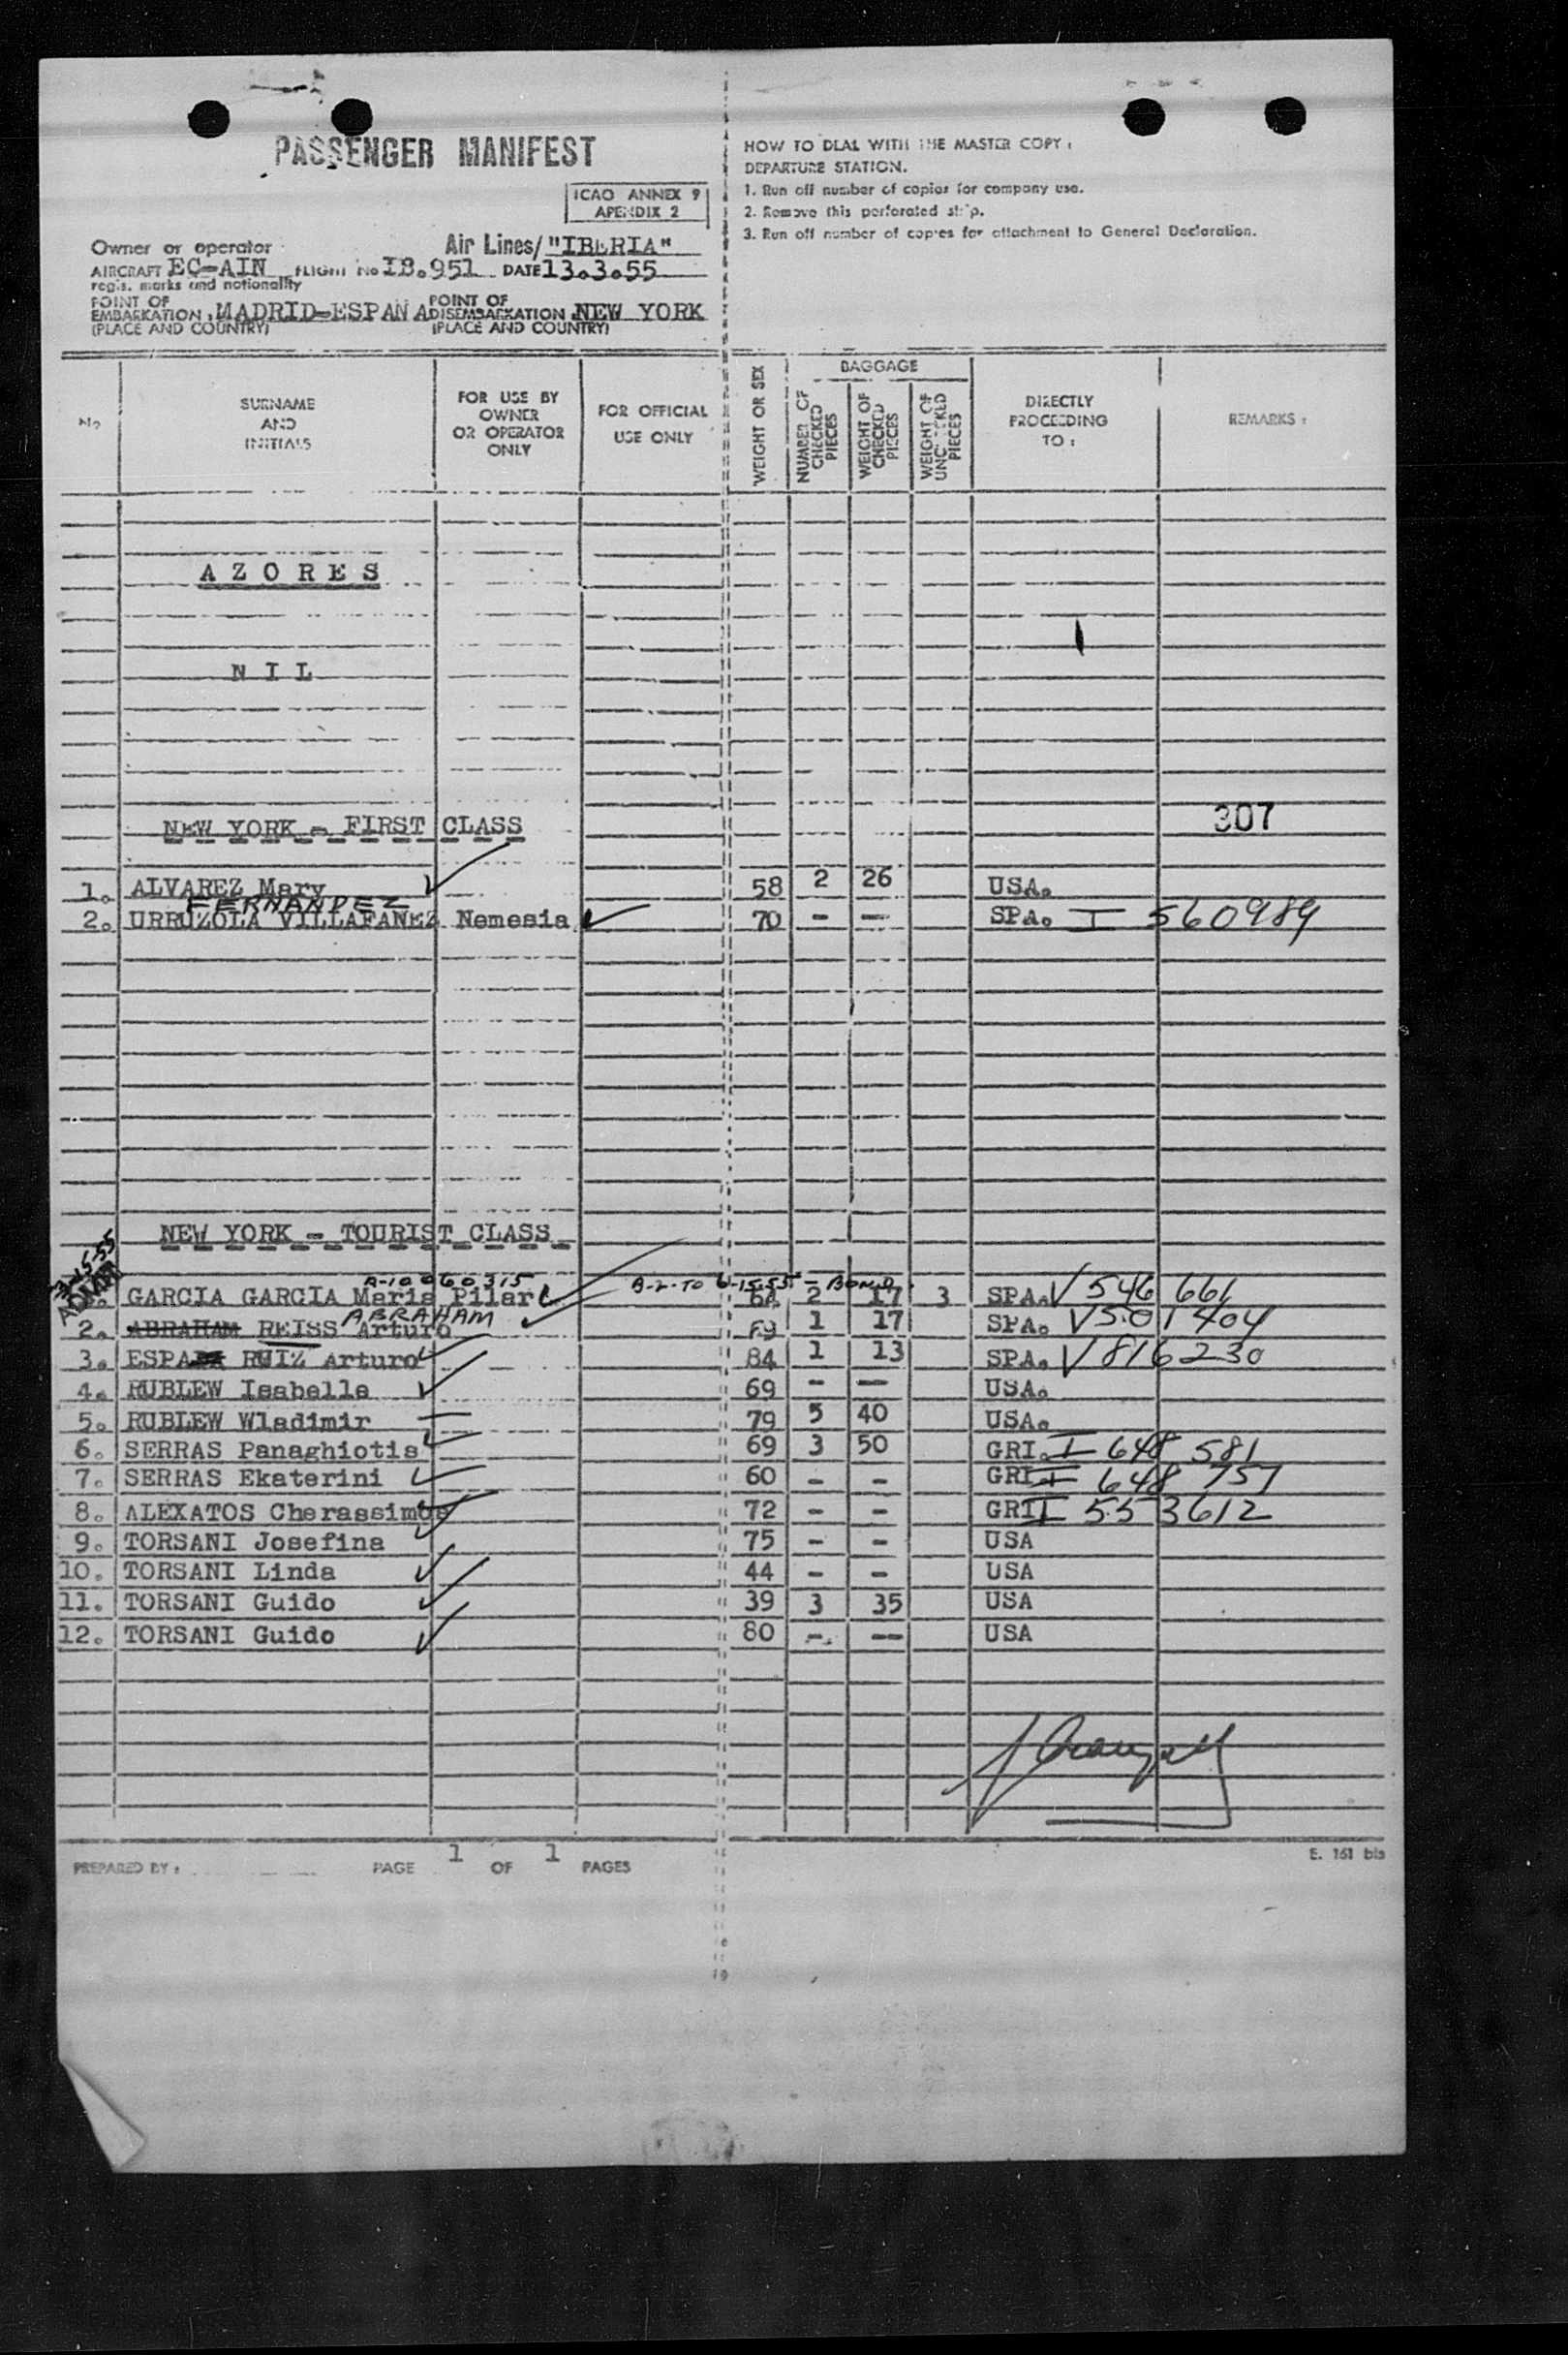 PASSENGER MANIFEST
ICAO ANNEX 9
APENDIX 2
Owner or operator Air Lines/ "IBERIA"
AIRCRAFT EC-AIN FLIGHT No IB.951 DATE 13.3.55
regis. marks and nationality
POINT OF EMBARKATION, MADRID-ESPANA POINT OF DISEMBARKATION NEW YORK
(PLACE AND COUNTRY) (PLACE AND COUNTRY)
HOW TO DEAL WITH THE MASTER COPY:
DEPARTURE STATION.
1. Run off number of copies for company use.
2. Remove this perforated strip.
3. Run off number of copies for attachment to General Declaration.
No
SURNAME
AND
INITIALS
FOR USE BY
OWNER
OR OPERATOR
ONLY
FOR OFFICIAL
USE ONLY
WEIGHT OR SEX
BAGGAGE
NUMBER OF CHECKED PIECES
WEIGHT OF CHECKED PIECES
WEIGHT OF UNCHECKED PIECES
DIRECTLY
PROCEEDING
TO:
REMARKS:
AZORES
NIL
307
NEW YORK - FIRST CLASS
1. ALVAREZ Mary 58 2 26 USA.
FERNANDEZ
2. URRUZOLA VILLAFANEZ Nemesia 70 - - SPA. I 560989
NEW YORK - TOURIST CLASS
3-15-55
A-10060315 B-2-TO 6-15-55 - BOND
GARCIA GARCIA Maria Pilar 2 17 3 SPA. V 546 661
ABRAHAM
2. ABRAHAM REISS Arturo 69 1 17 SPA. V 501 404
3. ESPA RUIZ Arturo 84 1 13 SPA. V 816230
4. RUBLEW Isabelle 69 - - USA.
5. RUBLEW Wladimir 79 5 40 USA.
6. SERRAS Panaghiotis 69 3 50 GRI. I 648 581
7. SERRAS Ekaterini 60 - - GRI I 648 757
8. ALEXATOS Cherassimos 72 - - GRI I 553612
9. TORSANI Josefina 75 - - USA
10. TORSANI Linda 44 - - USA
11. TORSANI Guido 39 3 35 USA
12. TORSANI Guido 80 - - USA
PREPARED BY: PAGE 1 OF 1 PAGES
E. 161 bis